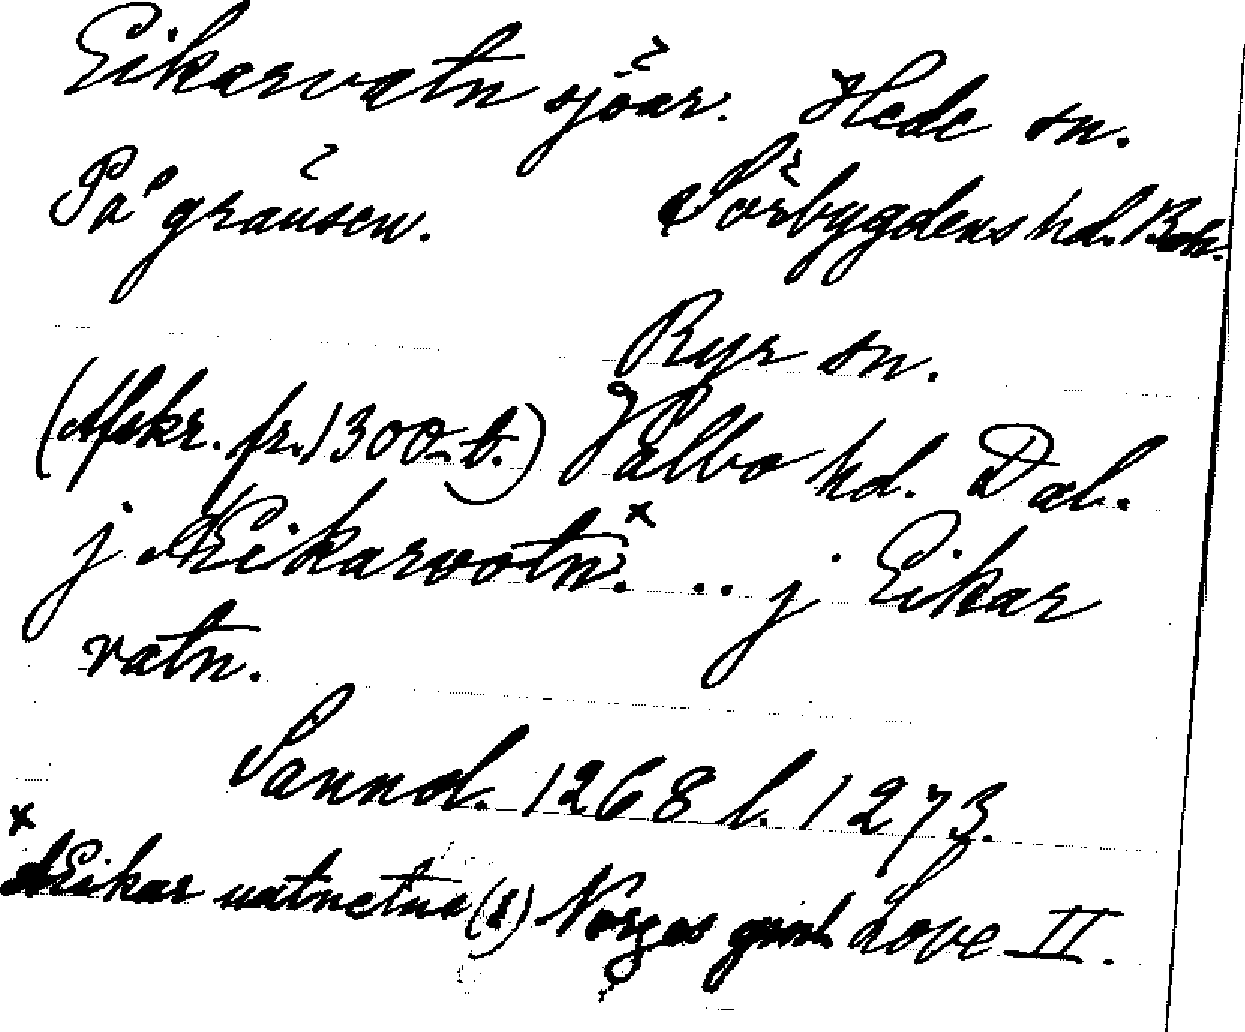 Eikarvatn sjöar. Hede sn.
På gränsen. Sörbygdens hd. Boh.
Ryr sn.
(Afskr. fr. 1300-t.) Valbo hd. Dal.
j Æikarvotn.x ... j Eikar
vatn.
Sannd. 1268 l. 1273.
x Æikar vatnetna (!) Norges gml. Love II.